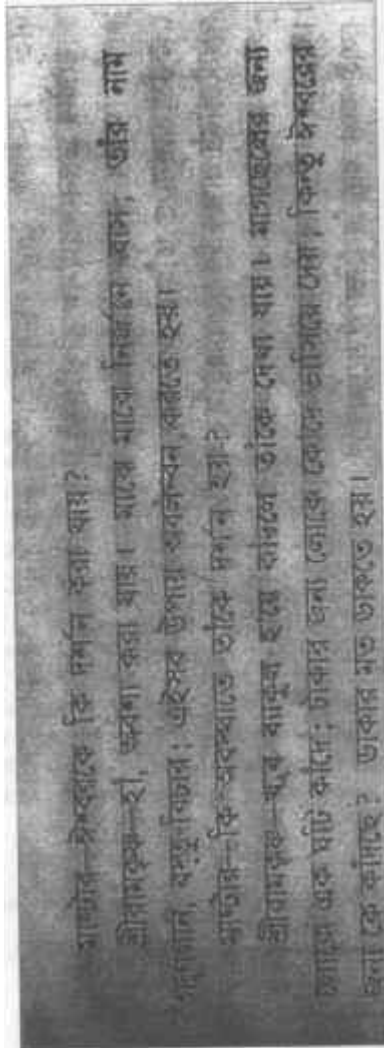 মাস্টার—ঈশ্বরকে কি দর্শন করা যায়?
শ্রীরামকৃষ্ণ—হাঁ, অবশ্য করা যায়। মাঝে মাঝে নির্জনে বাস; তাঁর নাম
গুণগান, বস্তুবিচার; এইসব উপায় অবলম্বন করতে হয়।
মাস্টার—কি অবস্থাতে তাঁকে দর্শন হয়?
শ্রীরামকৃষ্ণ—খুব ব্যাকুল হয়ে কাঁদলে তাঁকে দেখা যায়। মাগছেলের জন্য
লোকে এক ঘটি কাঁদে; টাকার জন্য লোকে কেঁদে ভাসিয়ে দেয়; কিন্তু ঈশ্বরের
জন্য কে কাঁদছে? ডাকার মত ডাকতে হয়।